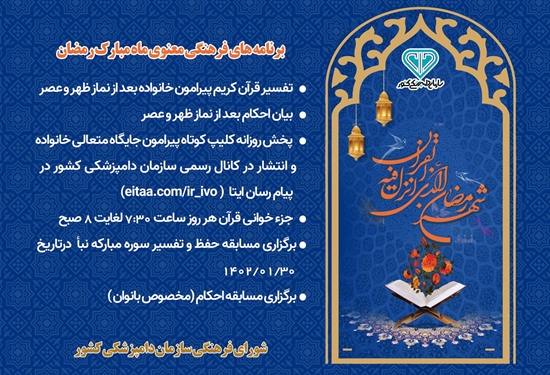 برنامه های فرهنگی معنوی ماه مبارک رمضان
تفسیر قرآن کریم پیرامون خانواده بعد از نماز ظهر و عصر
بیان احکام بعد از نماز ظهر و عصر
پخش روزانه کلیپ کوتاه پیرامون جایگاه متعالی خانواده
و انتشار در کانال رسمی سازمان دامپزشکی کشور در
پیام رسان ایتا ( eitaa.com/ir_ivo)
جزء خوانی قرآن هر روز ساعت ۷:۳۰ لغایت ۸ صبح
برگزاری مسابقه حفظ و تفسیر سوره مبارکه نبأ درتاریخ
۱۴۰۲/۰۱/۳۰
برگزاری مسابقه احکام (مخصوص بانوان)
شورای فرهنگی سازمان دامپزشکی کشور
سازمان دامپزشکی کشور
شهر رمضان الذی انزل فیه القرآن